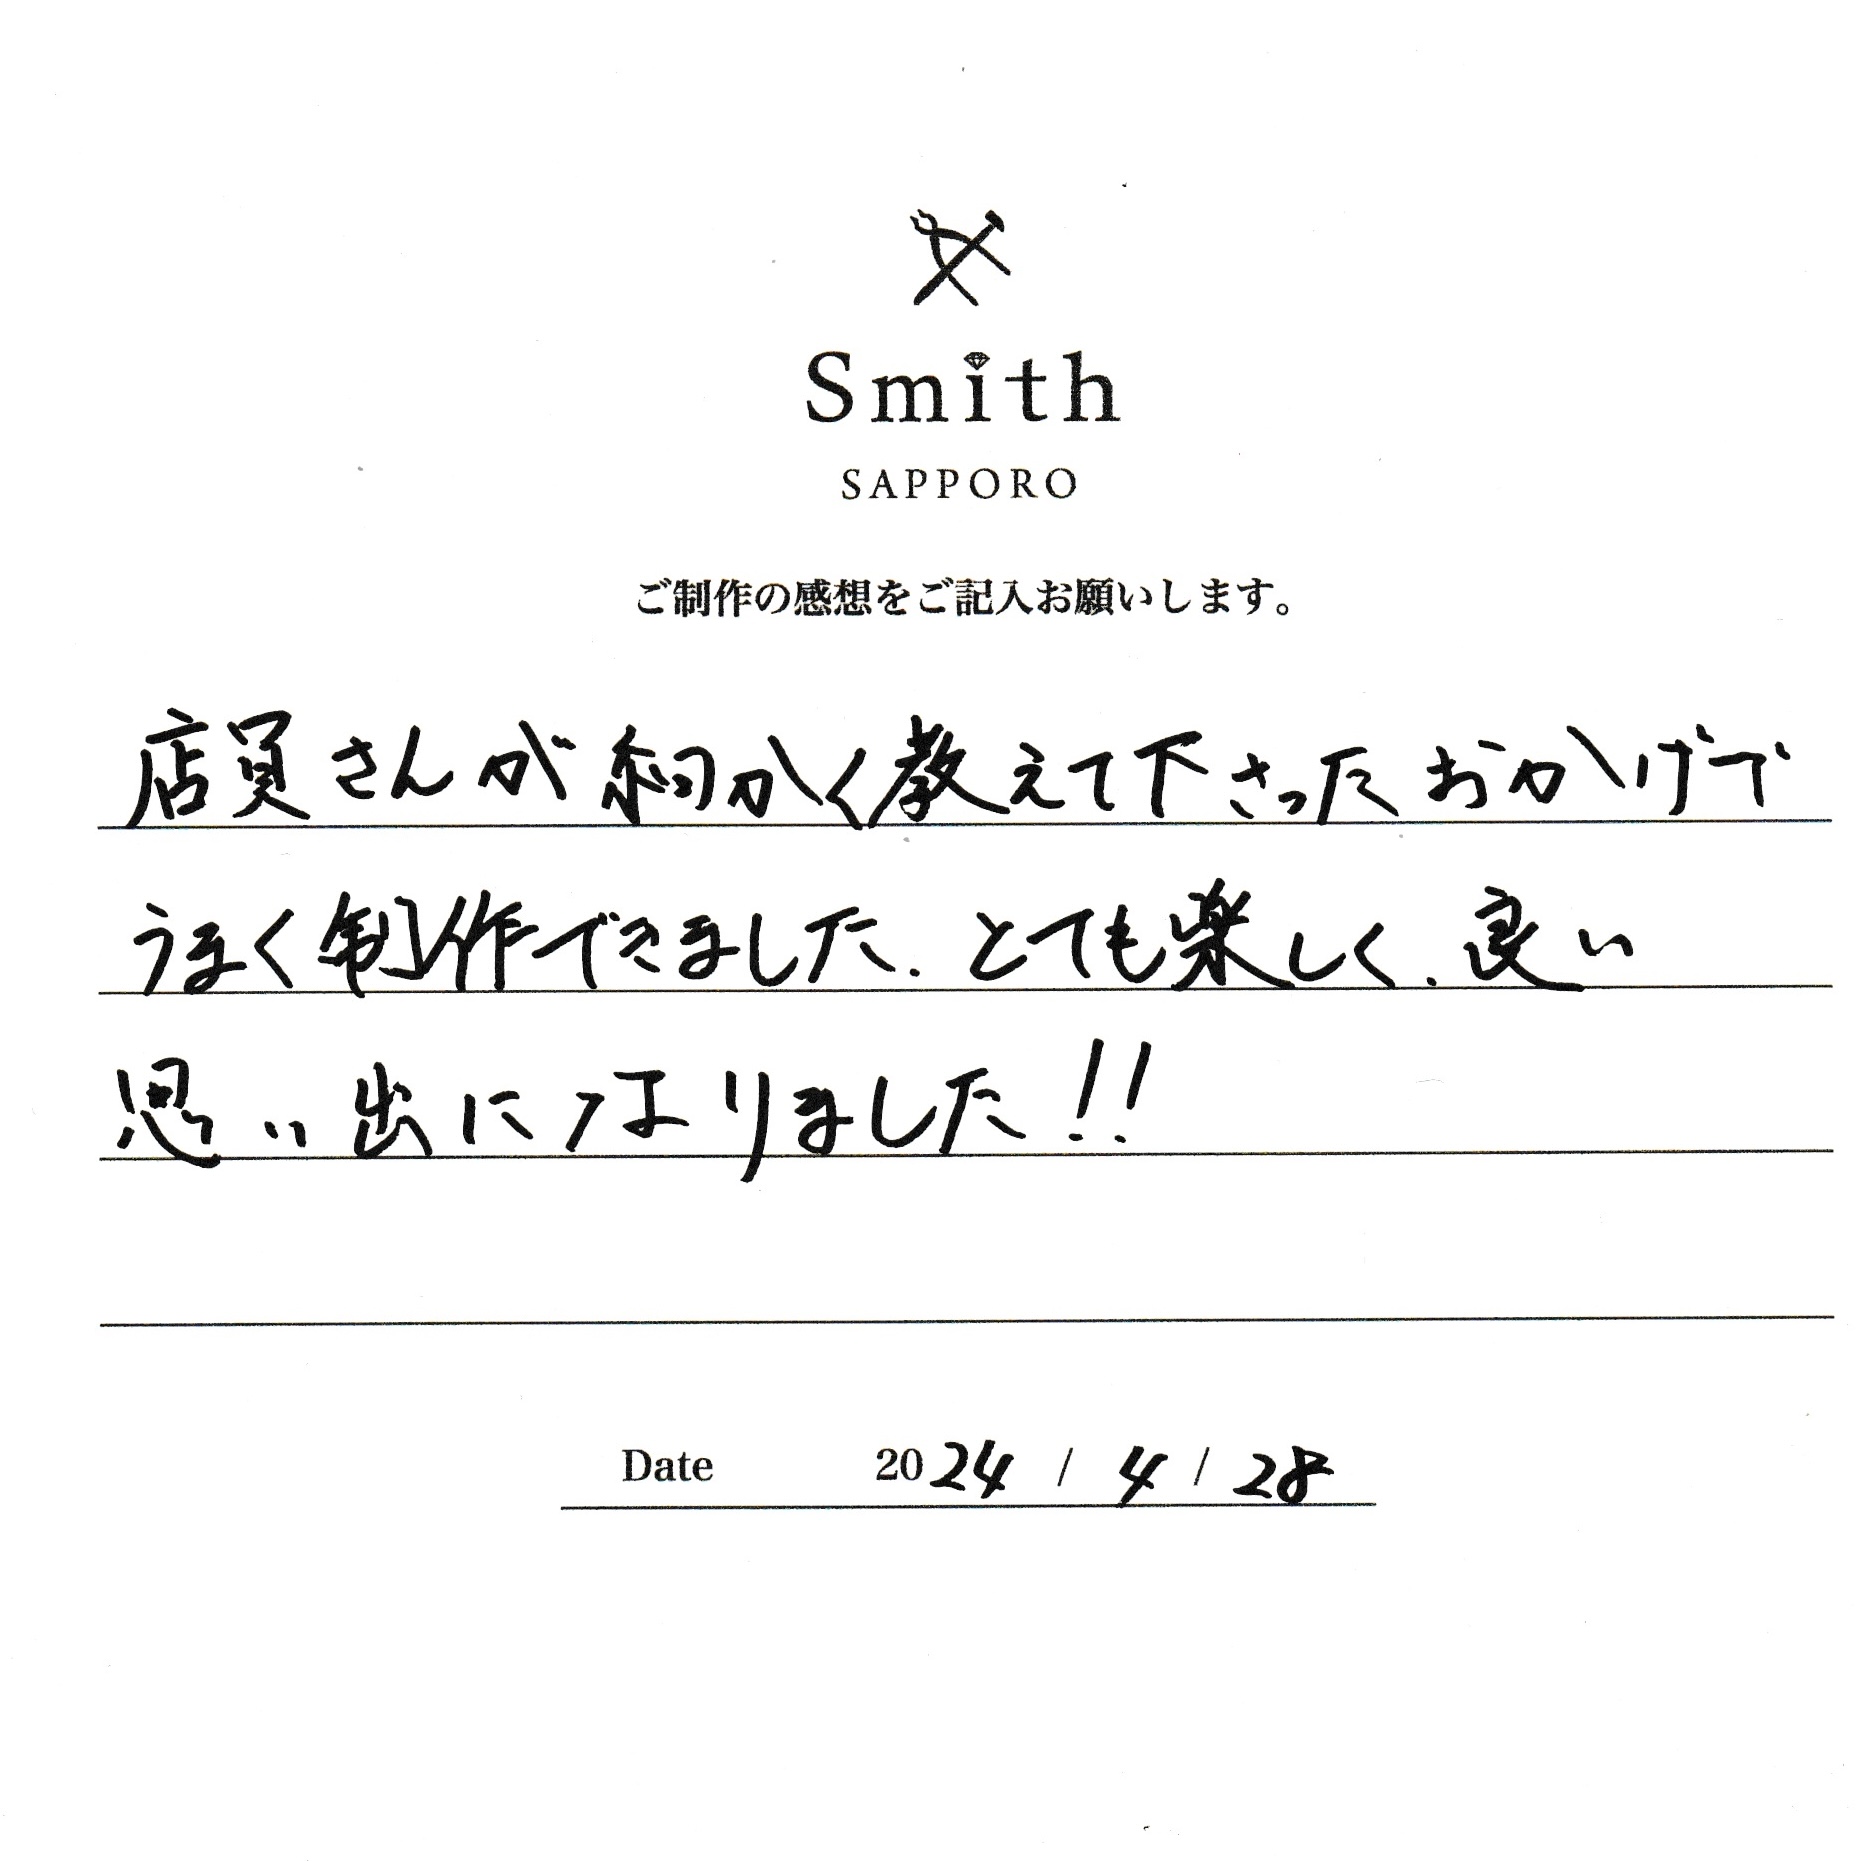 Smith
SAPPORO
ご制作の感想をご記入お願いします。
店員さんが細かく教えて下さったおかげで
うまく制作できました。とても楽しく、良い
思い出になりました!!
Date 2024 / 4 / 28